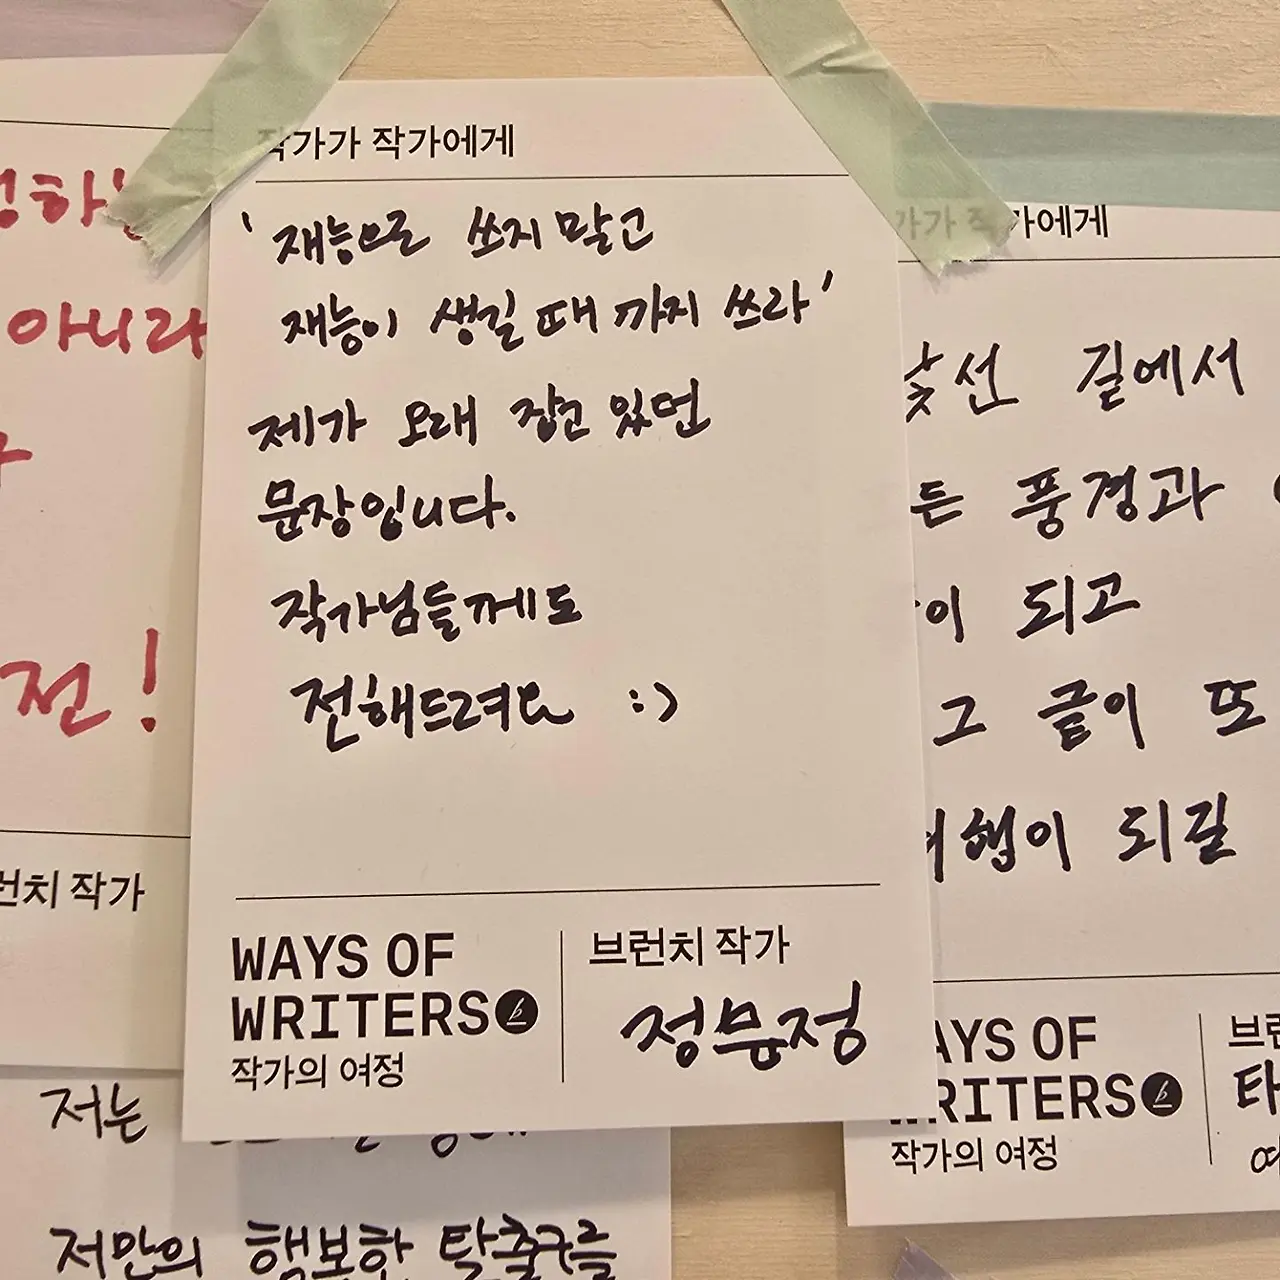 작가가 작가에게
'재능으로 쓰지 말고
재능이 생길 때 까지 쓰라'
제가 오래 잡고 있던
문장입니다.
작가님들께도
전해드려요 :)
WAYS OF
WRITERS
작가의 여정
브런치 작가
정무정
아니라
전!
런치 작가
저는
저만의 행복한 탈출구를
가가 작가에게
낯선 길에서
든 풍경과
이 되고
그 끝이 또
여행이 되길
WAYS OF
WRITERS
작가의 여정